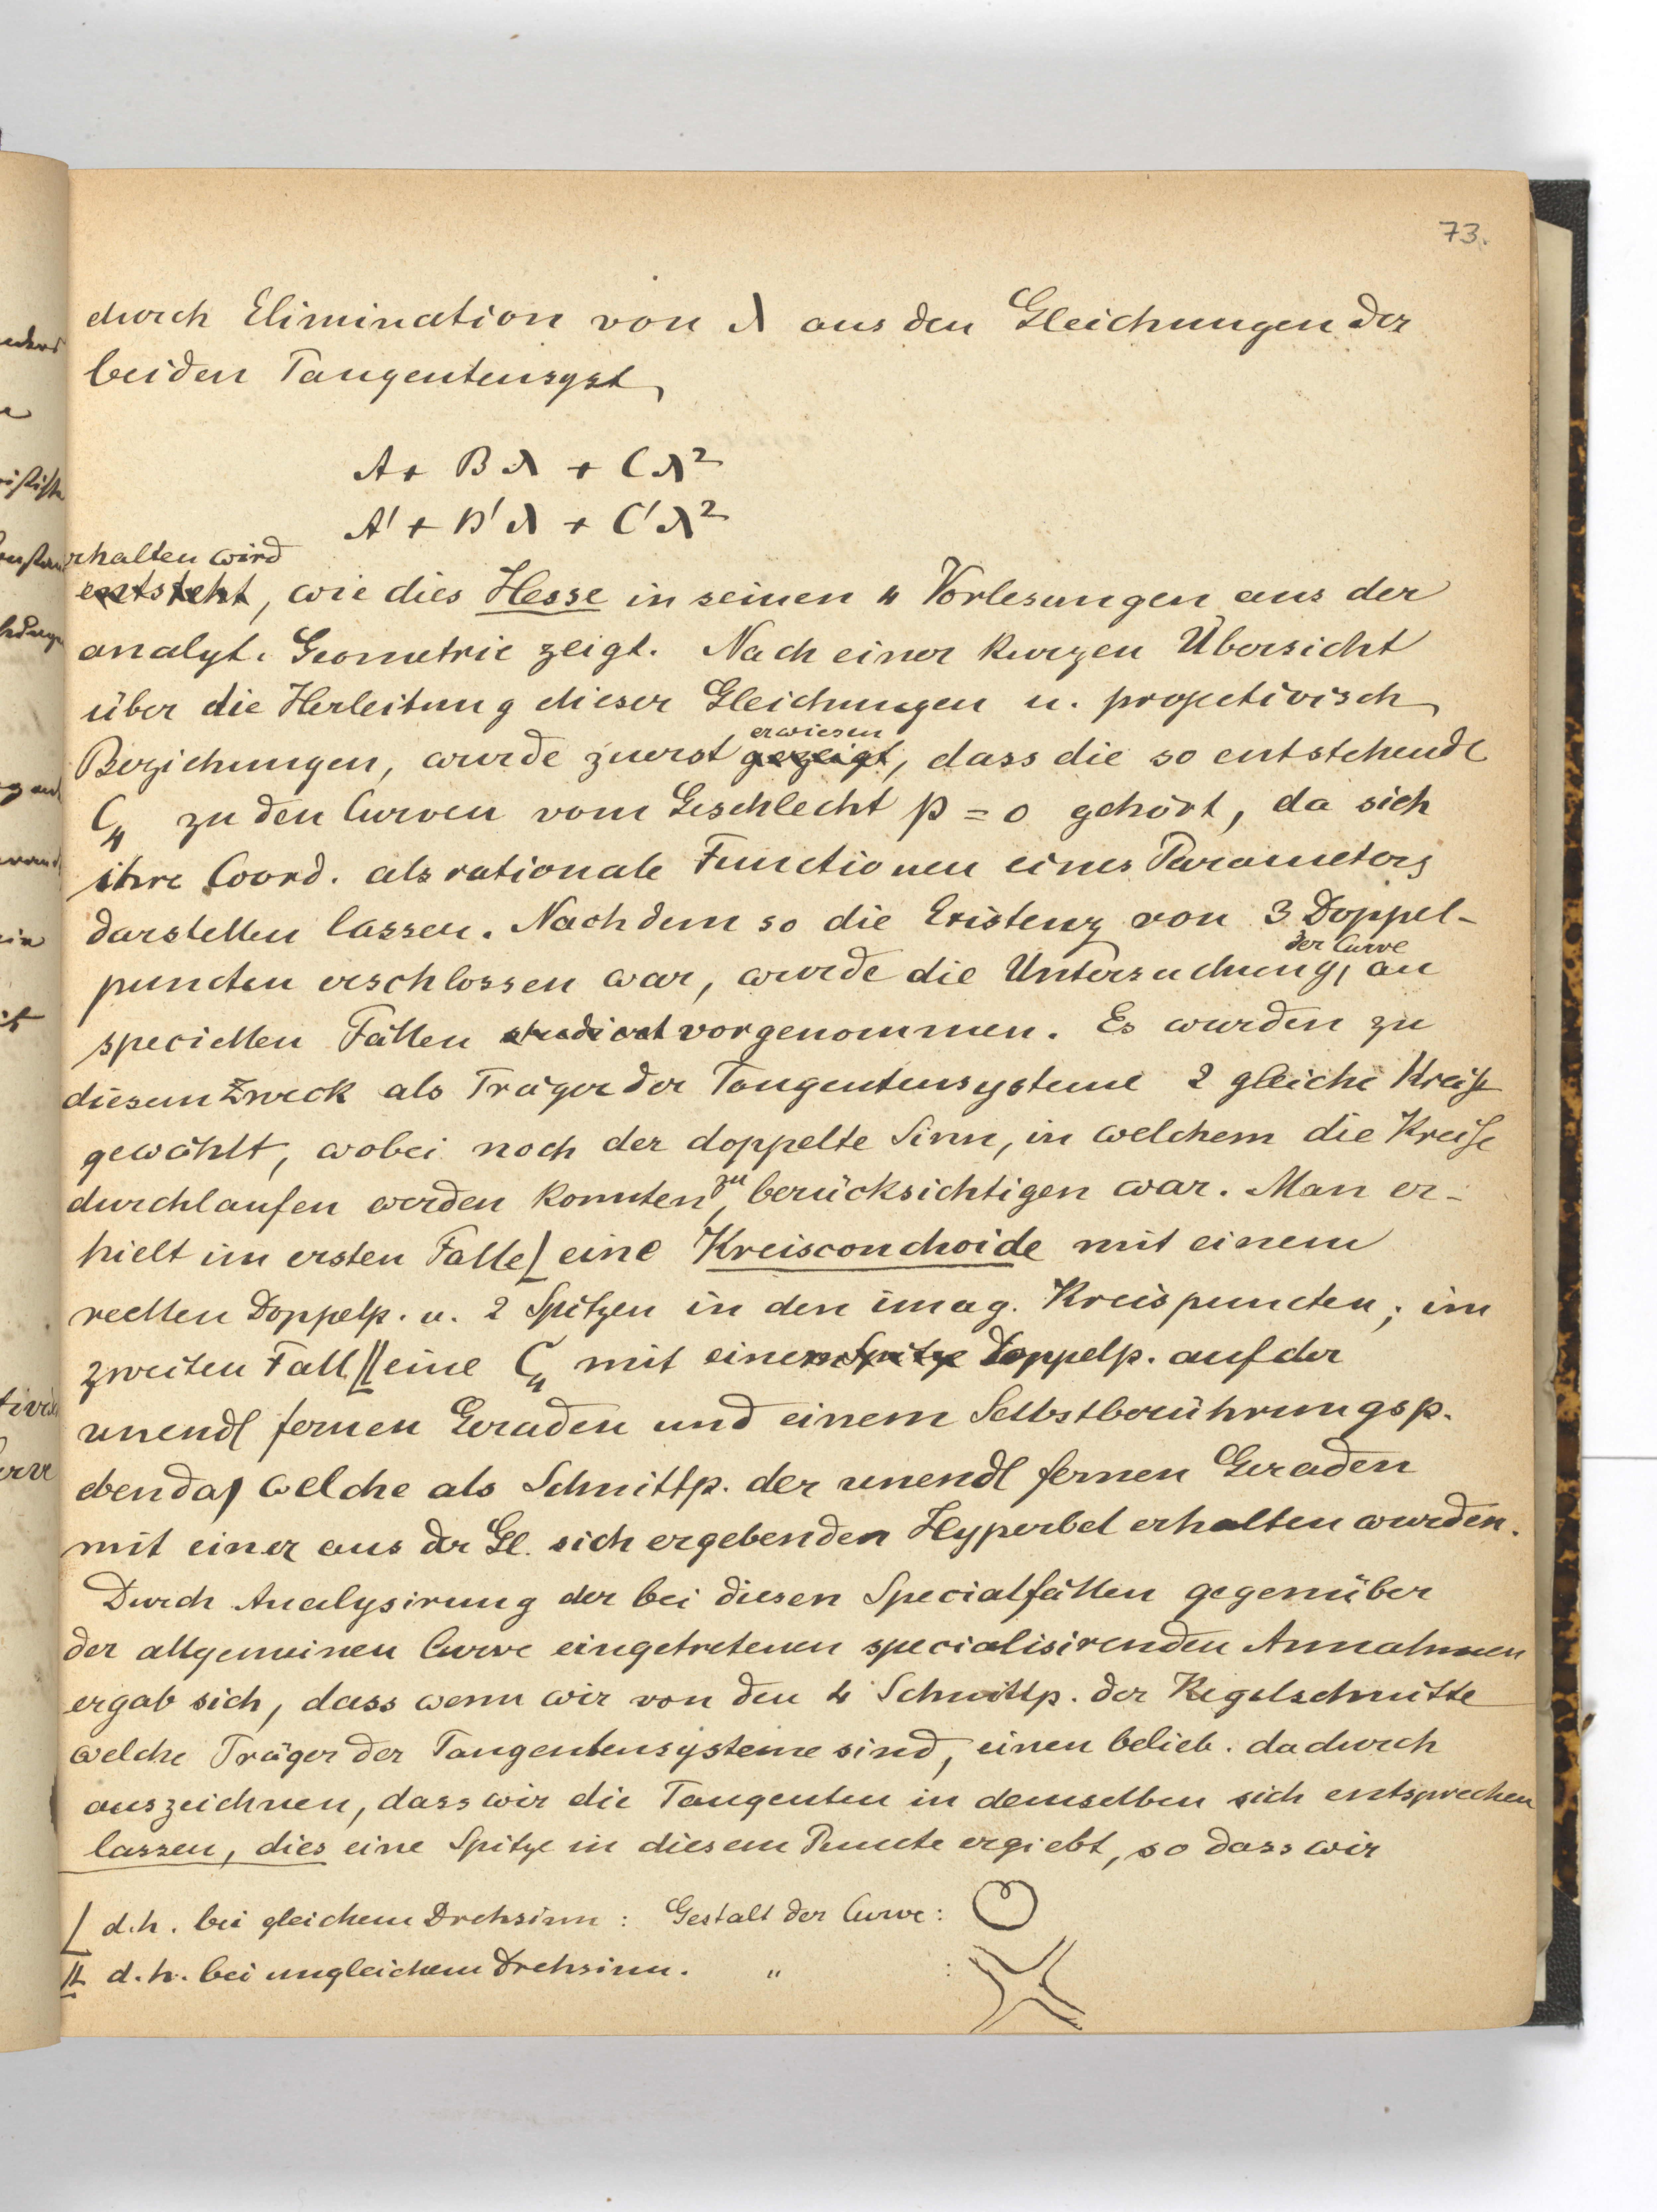 73.
durch Elimination von λ aus den Gleichungen der
beiden Tangentensyst.
A + Bλ + Cλ²
A' + B'λ + C'λ²
erhalten wird
entsteht, wie dies Hesse in seinen 4 Vorlesungen aus der
analyt. Geometrie zeigt. Nach einer kurzen Übersicht
über die Herleitung dieser Gleichungen u. projectivisch
erwiesen
Beziehungen, wurde zuerst gezeigt, dass die so entstehende
C₄ zu den Curven vom Geschlecht p = 0 gehört, da sich
ihre Coord. als rationale Functionen eines Parameters
darstellen lassen. Nachdem so die Existenz von 3 Doppel-
der Curve
puncten erschlossen war, wurde die Untersuchung, an
speciellen Fällen studiert vorgenommen. Es wurden zu
diesem Zweck als Träger der Tangentensysteme 2 gleiche Kreise
gewählt, wobei noch der doppelte Sinn, in welchem die Kreise
durchlaufen werden konnten, zu berücksichtigen war. Man er-
hielt im ersten Falle ⌊ eine Kreisconchoide mit einem
reellen Doppelp. u. 2 Spitzen in den imag. Kreispuncten; im
zweiten Fall ⌊⌊ eine C₄ mit einem Spitze Doppelp. auf der
unendl fernen Geraden und einem Selbstberührungsp.
ebenda, welche als Schnittp. der unendl fernen Geraden
mit einer aus der Gl. sich ergebenden Hyperbel erhalten wurden.
Durch Analysirung der bei diesen Specialfällen gegenüber
der allgemeinen Curve eingetretenen specialisirenden Annahmen
ergab sich, dass wenn wir von den 4 Schnittp. der Kegelschnitte
welche Träger der Tangentensysteme sind, einen belieb. dadurch
auszeichnen, dass wir die Tangenten in demselben sich entsprechen
lassen, dies eine Spitze in diesem Puncte ergiebt, so dass wir
⌊ d.h. bei gleichem Drehsinn : Gestalt der Curve :
⌊⌊ d.h. bei ungleichem Drehsinn. " :